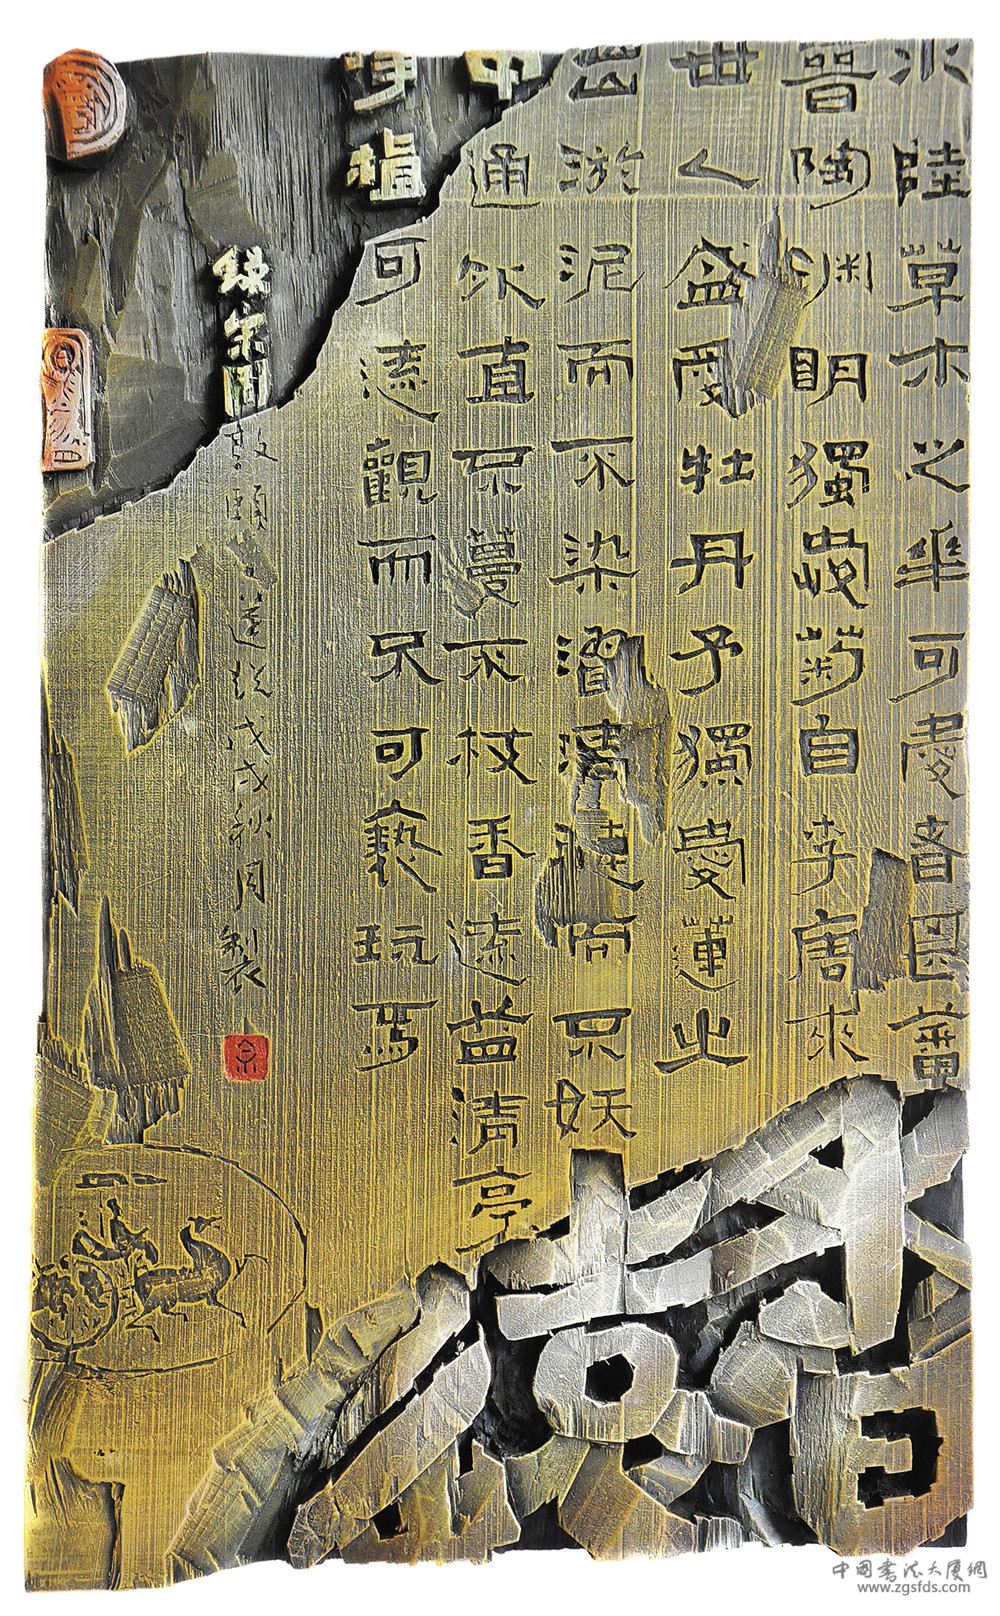 水陸草木之華可愛者甚蕃
晉陶淵明獨愛菊自李唐來
世人盛愛牡丹予獨愛蓮之
出淤泥而不染濯清漣而不妖
中通外直不蔓不枝香遠益清亭
淨植可遠觀而不可褻玩焉
錄宋周敦頤愛蓮說戊戌秋月製
中國書法大廈網
www.zgsfds.com